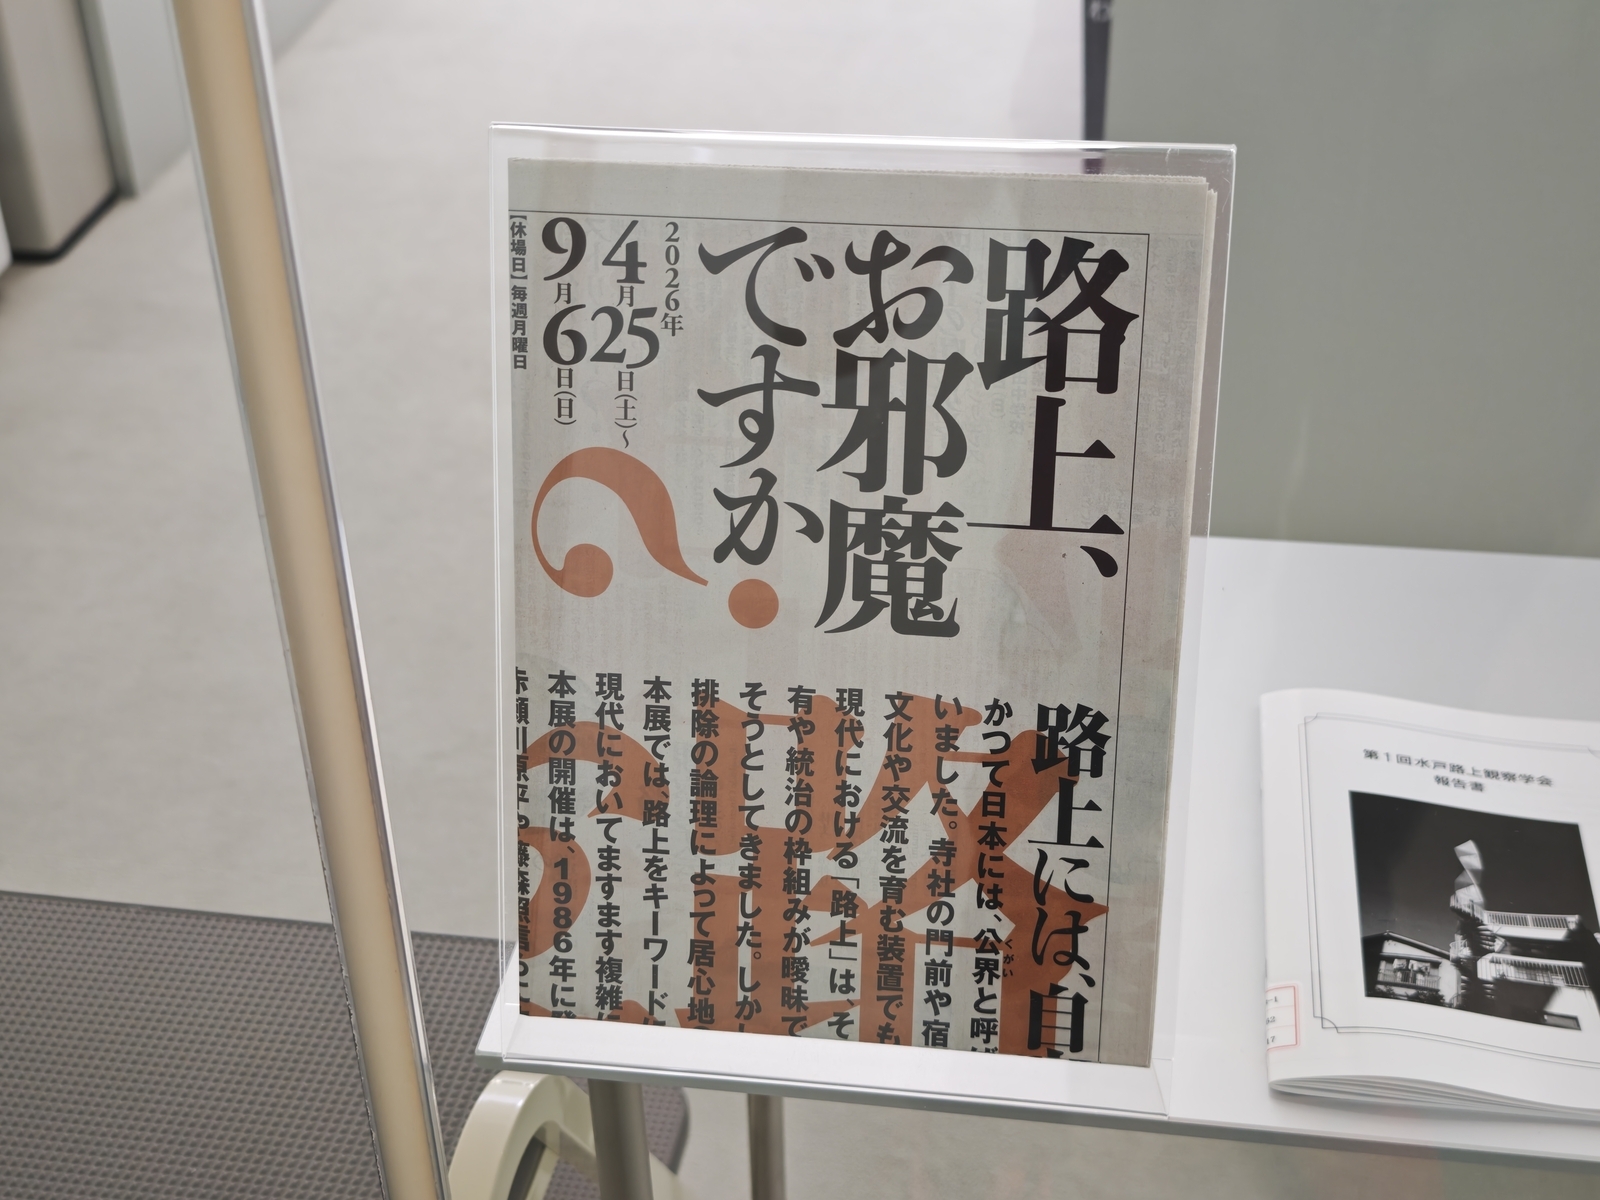 路上、
お邪魔
ですか
?
2026年
4月25日(土)〜
9月6日(日)
【休場日】毎週月曜日
路上には、自
かつて日本には、公界と呼ば
くがい
いました。寺社の門前や宿
文化や交流を育む装置でも
現代における「路上」は、そ
有や統治の枠組みが曖昧で
そうとしてきました。しかし
排除の論理によって居心地
本展では、路上をキーワードに
現代においてますます複雑に
本展の開催は、1986年に発
赤瀬川原平や藤森照信らに
第1回水戸路上観察学会
報告書